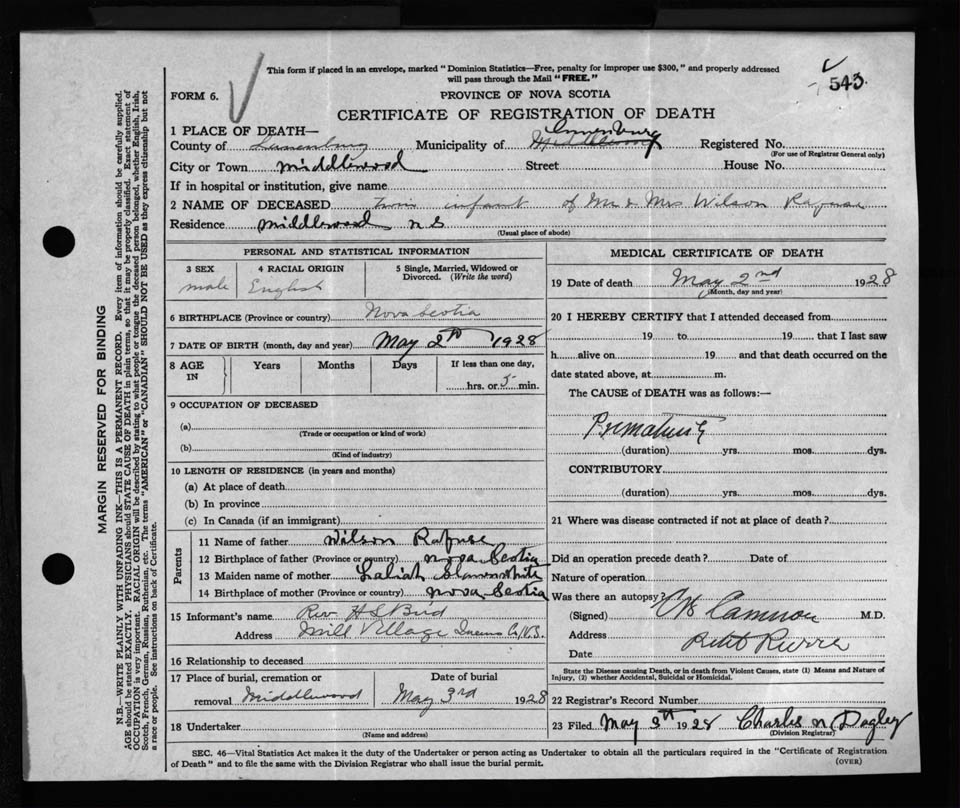 This form if placed in an envelope, marked "Dominion Statistics—Free, penalty for improper use $300," and properly addressed
will pass through the Mail "FREE."
543.
FORM 6.
PROVINCE OF NOVA SCOTIA
CERTIFICATE OF REGISTRATION OF DEATH
1 PLACE OF DEATH—
County of Lunenburg Municipality of Lunenburg Registered No.
(For use of Registrar General only)
City or Town Middlewood Street House No.
If in hospital or institution, give name
2 NAME OF DECEASED twin infant of Mr & Mrs Wilson Rafuse
Residence Middlewood N S
(Usual place of abode)
PERSONAL AND STATISTICAL INFORMATION
3 SEX 4 RACIAL ORIGIN 5 Single, Married, Widowed or
Divorced. (Write the word)
male English
6 BIRTHPLACE (Province or country) Nova Scotia
7 DATE OF BIRTH (month, day and year) May 2th 1928
8 AGE IN Years Months Days If less than one day,
hrs. or 5 min.
9 OCCUPATION OF DECEASED
(a)
(Trade or occupation or kind of work)
(b)
(Kind of industry)
10 LENGTH OF RESIDENCE (in years and months)
(a) At place of death
(b) In province
(c) In Canada (if an immigrant)
Parents
11 Name of father Wilson Rafuse
12 Birthplace of father (Province or country) Nova Scotia
13 Maiden name of mother
14 Birthplace of mother (Province or country) Nova Scotia
15 Informant's name Rev. H S Bird
Address Mill Village Queens Co/N.S.
16 Relationship to deceased
17 Place of burial, cremation or Date of burial
removal Middlewood May 3rd 1928
18 Undertaker
(Name and address)
MEDICAL CERTIFICATE OF DEATH
19 Date of death May 2nd 1928
(Month, day and year)
20 I HEREBY CERTIFY that I attended deceased from
19 to 19 that I last saw
h alive on 19 and that death occurred on the
date stated above, at m.
The CAUSE of DEATH was as follows:—
Prematurity
(duration) yrs. mos. dys.
CONTRIBUTORY
(duration) yrs. mos. dys.
21 Where was disease contracted if not at place of death?
Did an operation precede death? Date of
Nature of operation
Was there an autopsy?
(Signed) Cameron M.D.
Address Petit Riviere
Date
State the Disease causing Death, or in death from Violent Causes, state (1) Means and Nature of
Injury, (2) whether Accidental, Suicidal or Homicidal.
22 Registrar's Record Number
23 Filed May 3th 1928 Charles N Dagley
(Division Registrar)
SEC. 46—Vital Statistics Act makes it the duty of the Undertaker or person acting as Undertaker to obtain all the particulars required in the "Certificate of Registration
of Death" and to file the same with the Division Registrar who shall issue the burial permit.
(OVER)
MARGIN RESERVED FOR BINDING
N.B.—WRITE PLAINLY WITH UNFADING INK—THIS IS A PERMANENT RECORD. Every item of information should be carefully supplied.
AGE should be stated EXACTLY. PHYSICIANS should STATE CAUSE OF DEATH in plain terms, so that it may be properly classified. Exact statement of
OCCUPATION is very important. RACIAL ORIGIN will be described by stating to what people or tongue the deceased person belonged, whether English, Irish,
Scotch, French, German, Russian, Ruthenian, etc. The terms "AMERICAN" or "CANADIAN" SHOULD NOT BE USED as they express citizenship but not
a race or people. See instructions on back of Certificate.